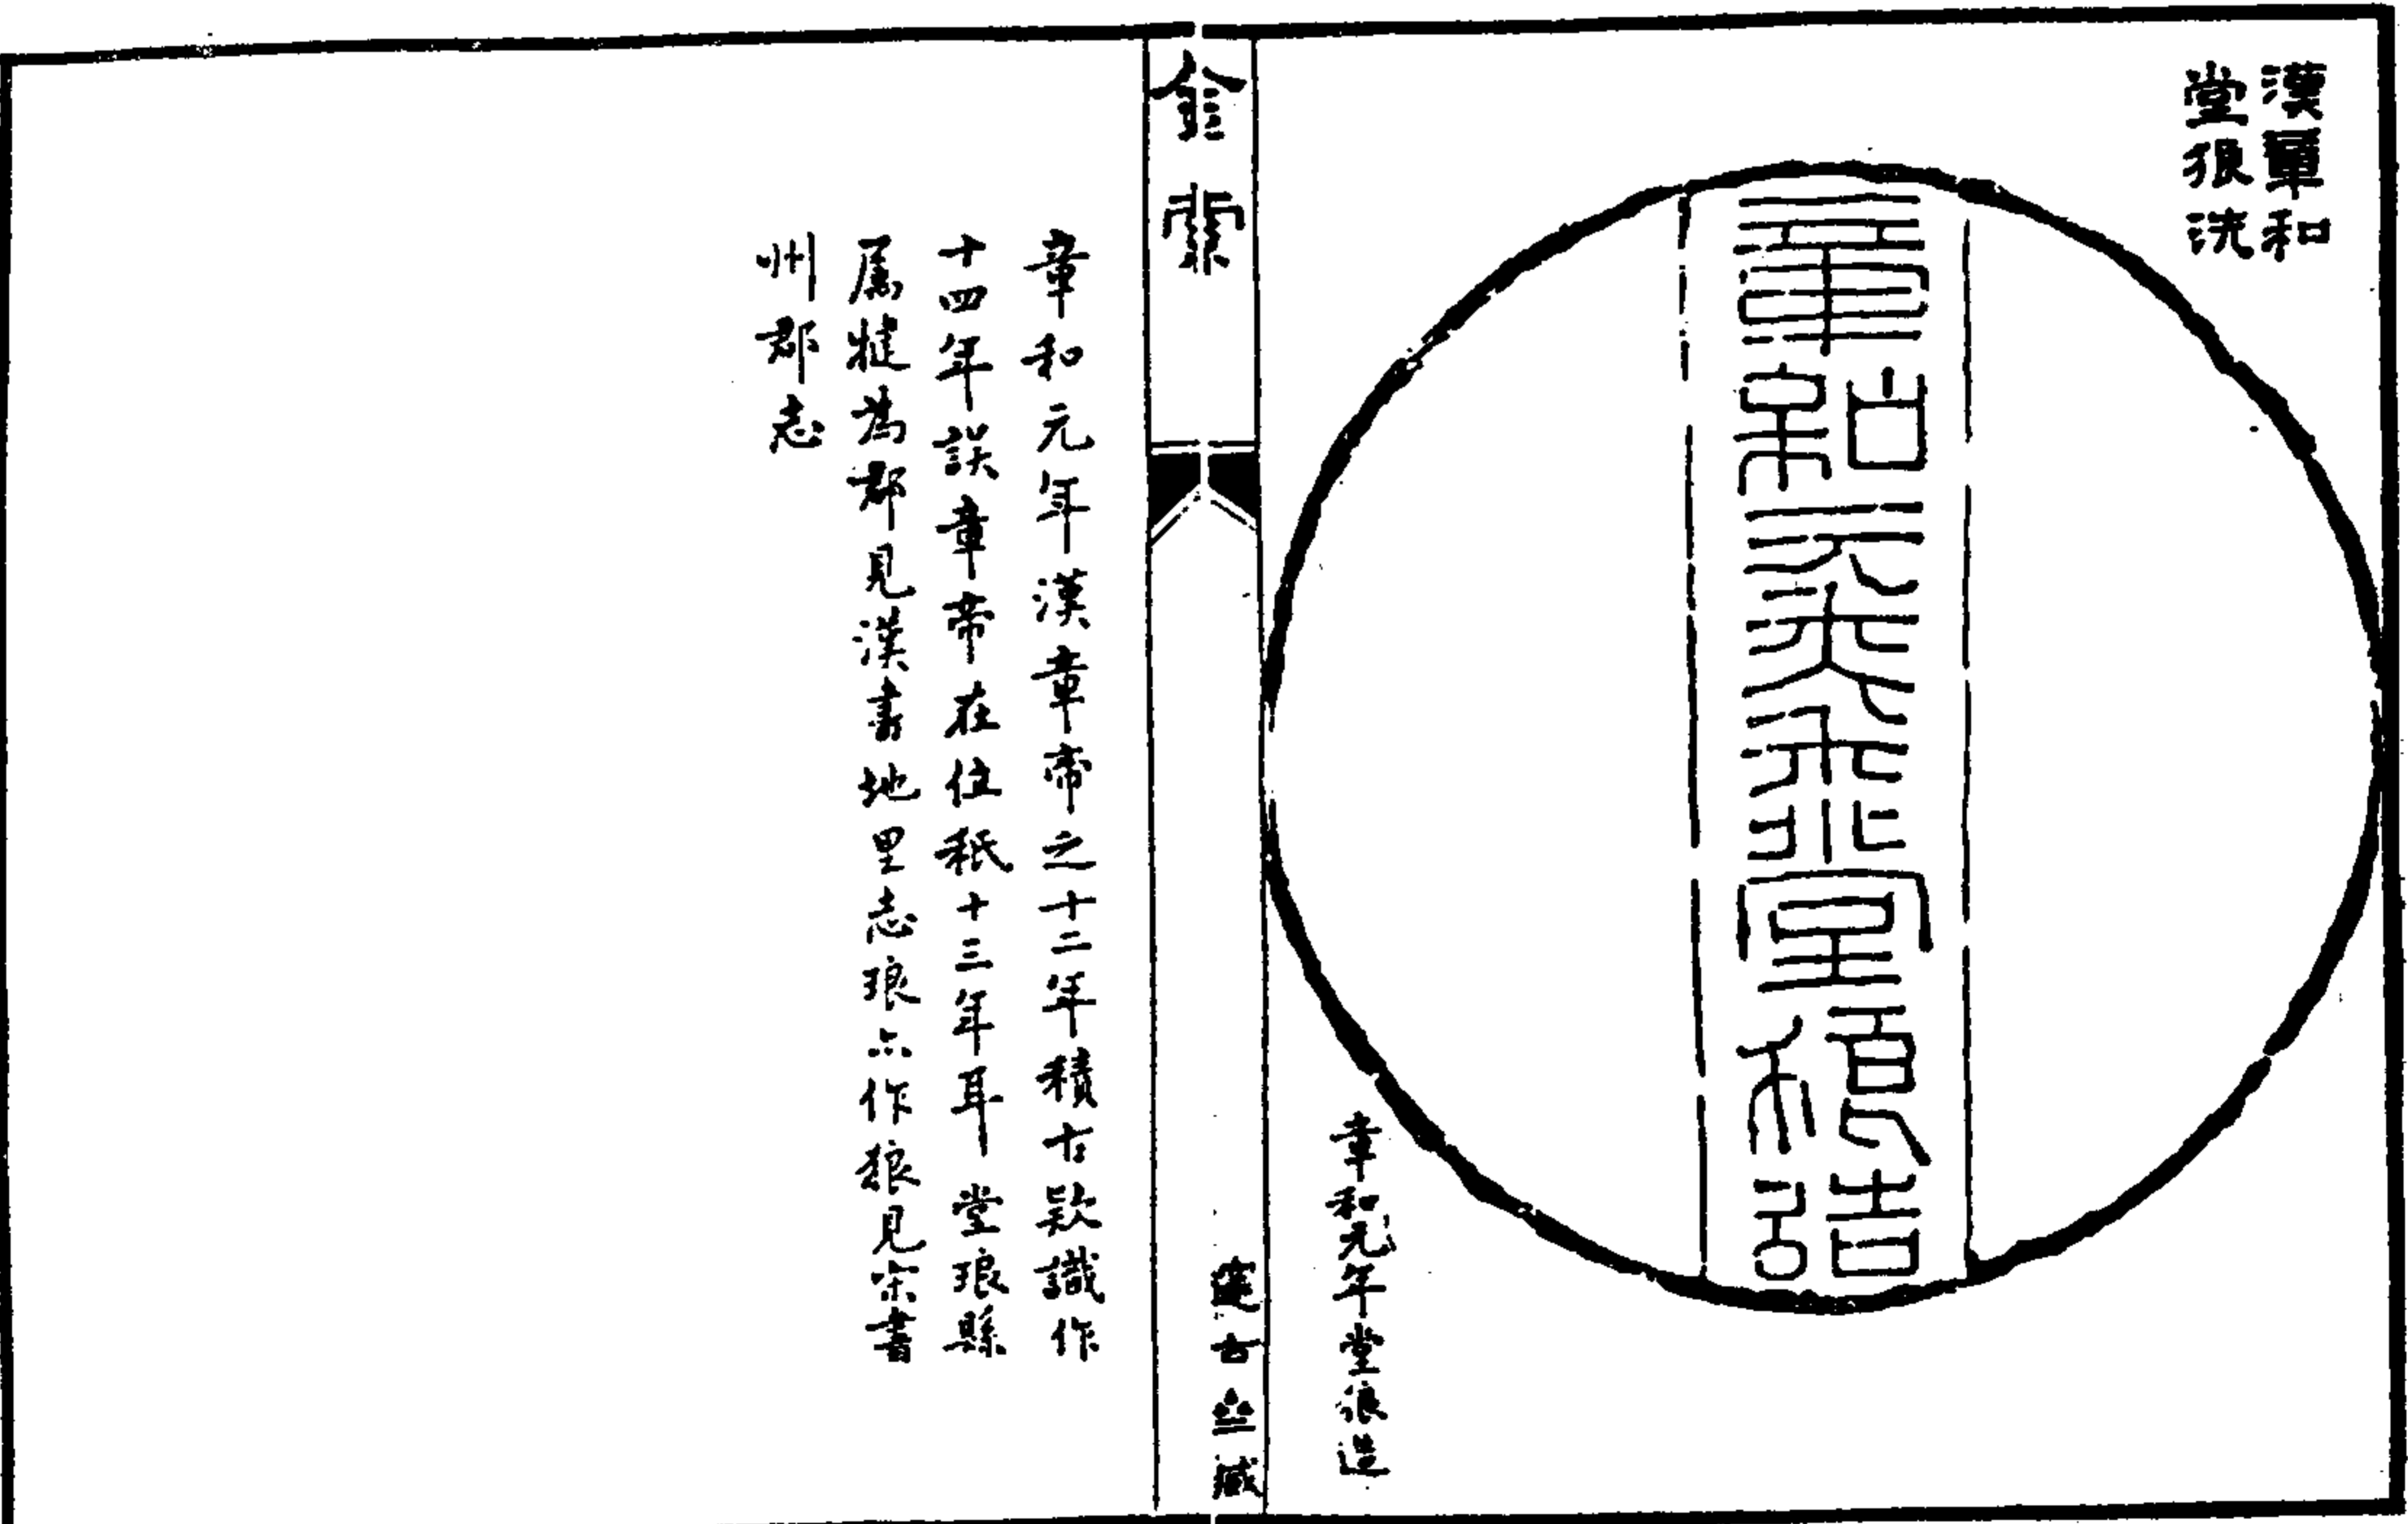 漢章和
堂狼洗
章和元年堂狼造
章和元年堂狼造
金索
章和元年漢章帝之十二年積古款識作
十四年誤章帝在位秖十三年耳堂琅縣
屬犍為郡見漢書地里志琅亦作狼見宋書
州郡志